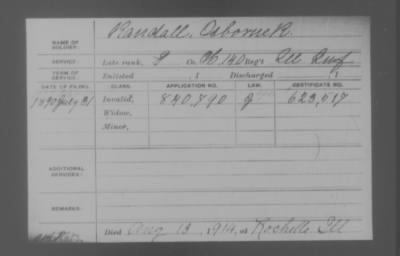 NAME OF SOLDIER: Randall, Osborne R.
SERVICE: Late rank, P Co. H, 140 Reg't Ill Inf
TERM OF SERVICE: Enlisted , 1 Discharged , 1
DATE OF FILING. CLASS. APPLICATION NO. LAW. CERTIFICATE NO.
1890 July 21 Invalid, 840,790 623,517
Widow,
Minor,
ADDITIONAL SERVICES:
REMARKS:
Died Aug 13, 1914, at Rochelle Ill